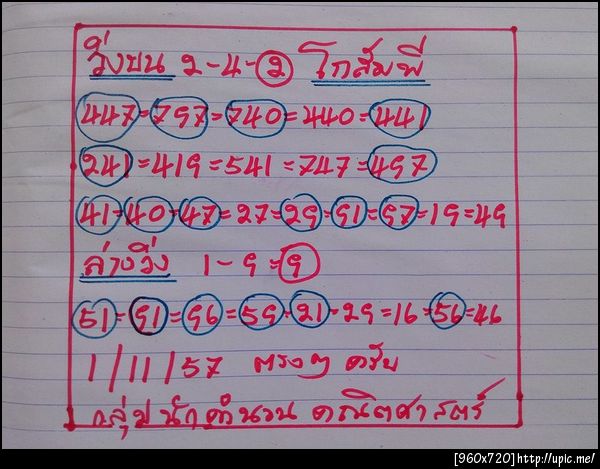 วิ่งบน ๖-4-② โกสัมพี
447=797=740=440=441
241=419=541=747=497
41=40=47=27=29=91=97=19=49
ล่างวิ่ง 1-9=⑨
51=91=96=59=21=29=16=56=46
1/11/57 ตรงๆ ครับ
กลุ่มนักคำนวน คณิตศาสตร์
[960x720]http://upic.me/